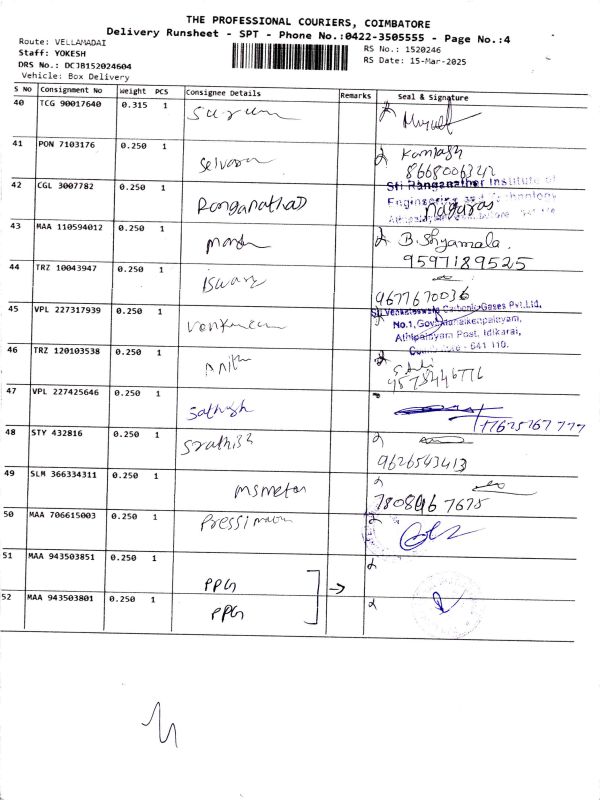 THE PROFESSIONAL COURIERS, COIMBATORE
Delivery Runsheet - SPT - Phone No.:0422-3505555 - Page No.:4
Route: VELLAMADAI
Staff: YOKESH
DRS No.: DCJB152024604
Vehicle: Box Delivery
RS No.: 1520246
RS Date: 15-Mar-2025
S No Consignment No Weight PCS Consignee Details Remarks Seal & Signature
40 TCG 90017640 0.315 1
41 PON 7103176 0.250 1 Selvaraj Kamlash
8668006342
42 CGL 3007782 0.250 1 Ranganathar Sri Ranganathar Institute of
Engineering and Technology
Nagaraj
43 MAA 110594012 0.250 1 B. Shyamala.
9597189525
44 TRZ 10043947 0.250 1 iswary
9677670036
45 VPL 227317939 0.250 1 Sri Venkateswara Carbonic Gases Pvt.Ltd.
No.1, Govindanaickenpalayam,
Athipalayam Post, Idikarai,
Coimbatore - 641 110.
46 TRZ 120103538 0.250 1 Anith
9578446776
47 VPL 227425646 0.250 1 Sathish
48 STY 432816 0.250 1
9626543413
49 SLM 366334311 0.250 1 msmetor
7808467675
50 MAA 706615003 0.250 1
51 MAA 943503851 0.250 1 PPG
52 MAA 943503801 0.250 1 PPG